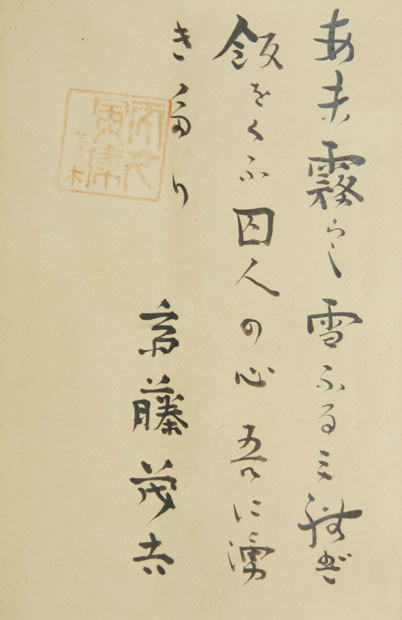 あま霧らし雪ふるみれば
飯をくふ囚人の心吾に湧
きたり
斎藤茂吉